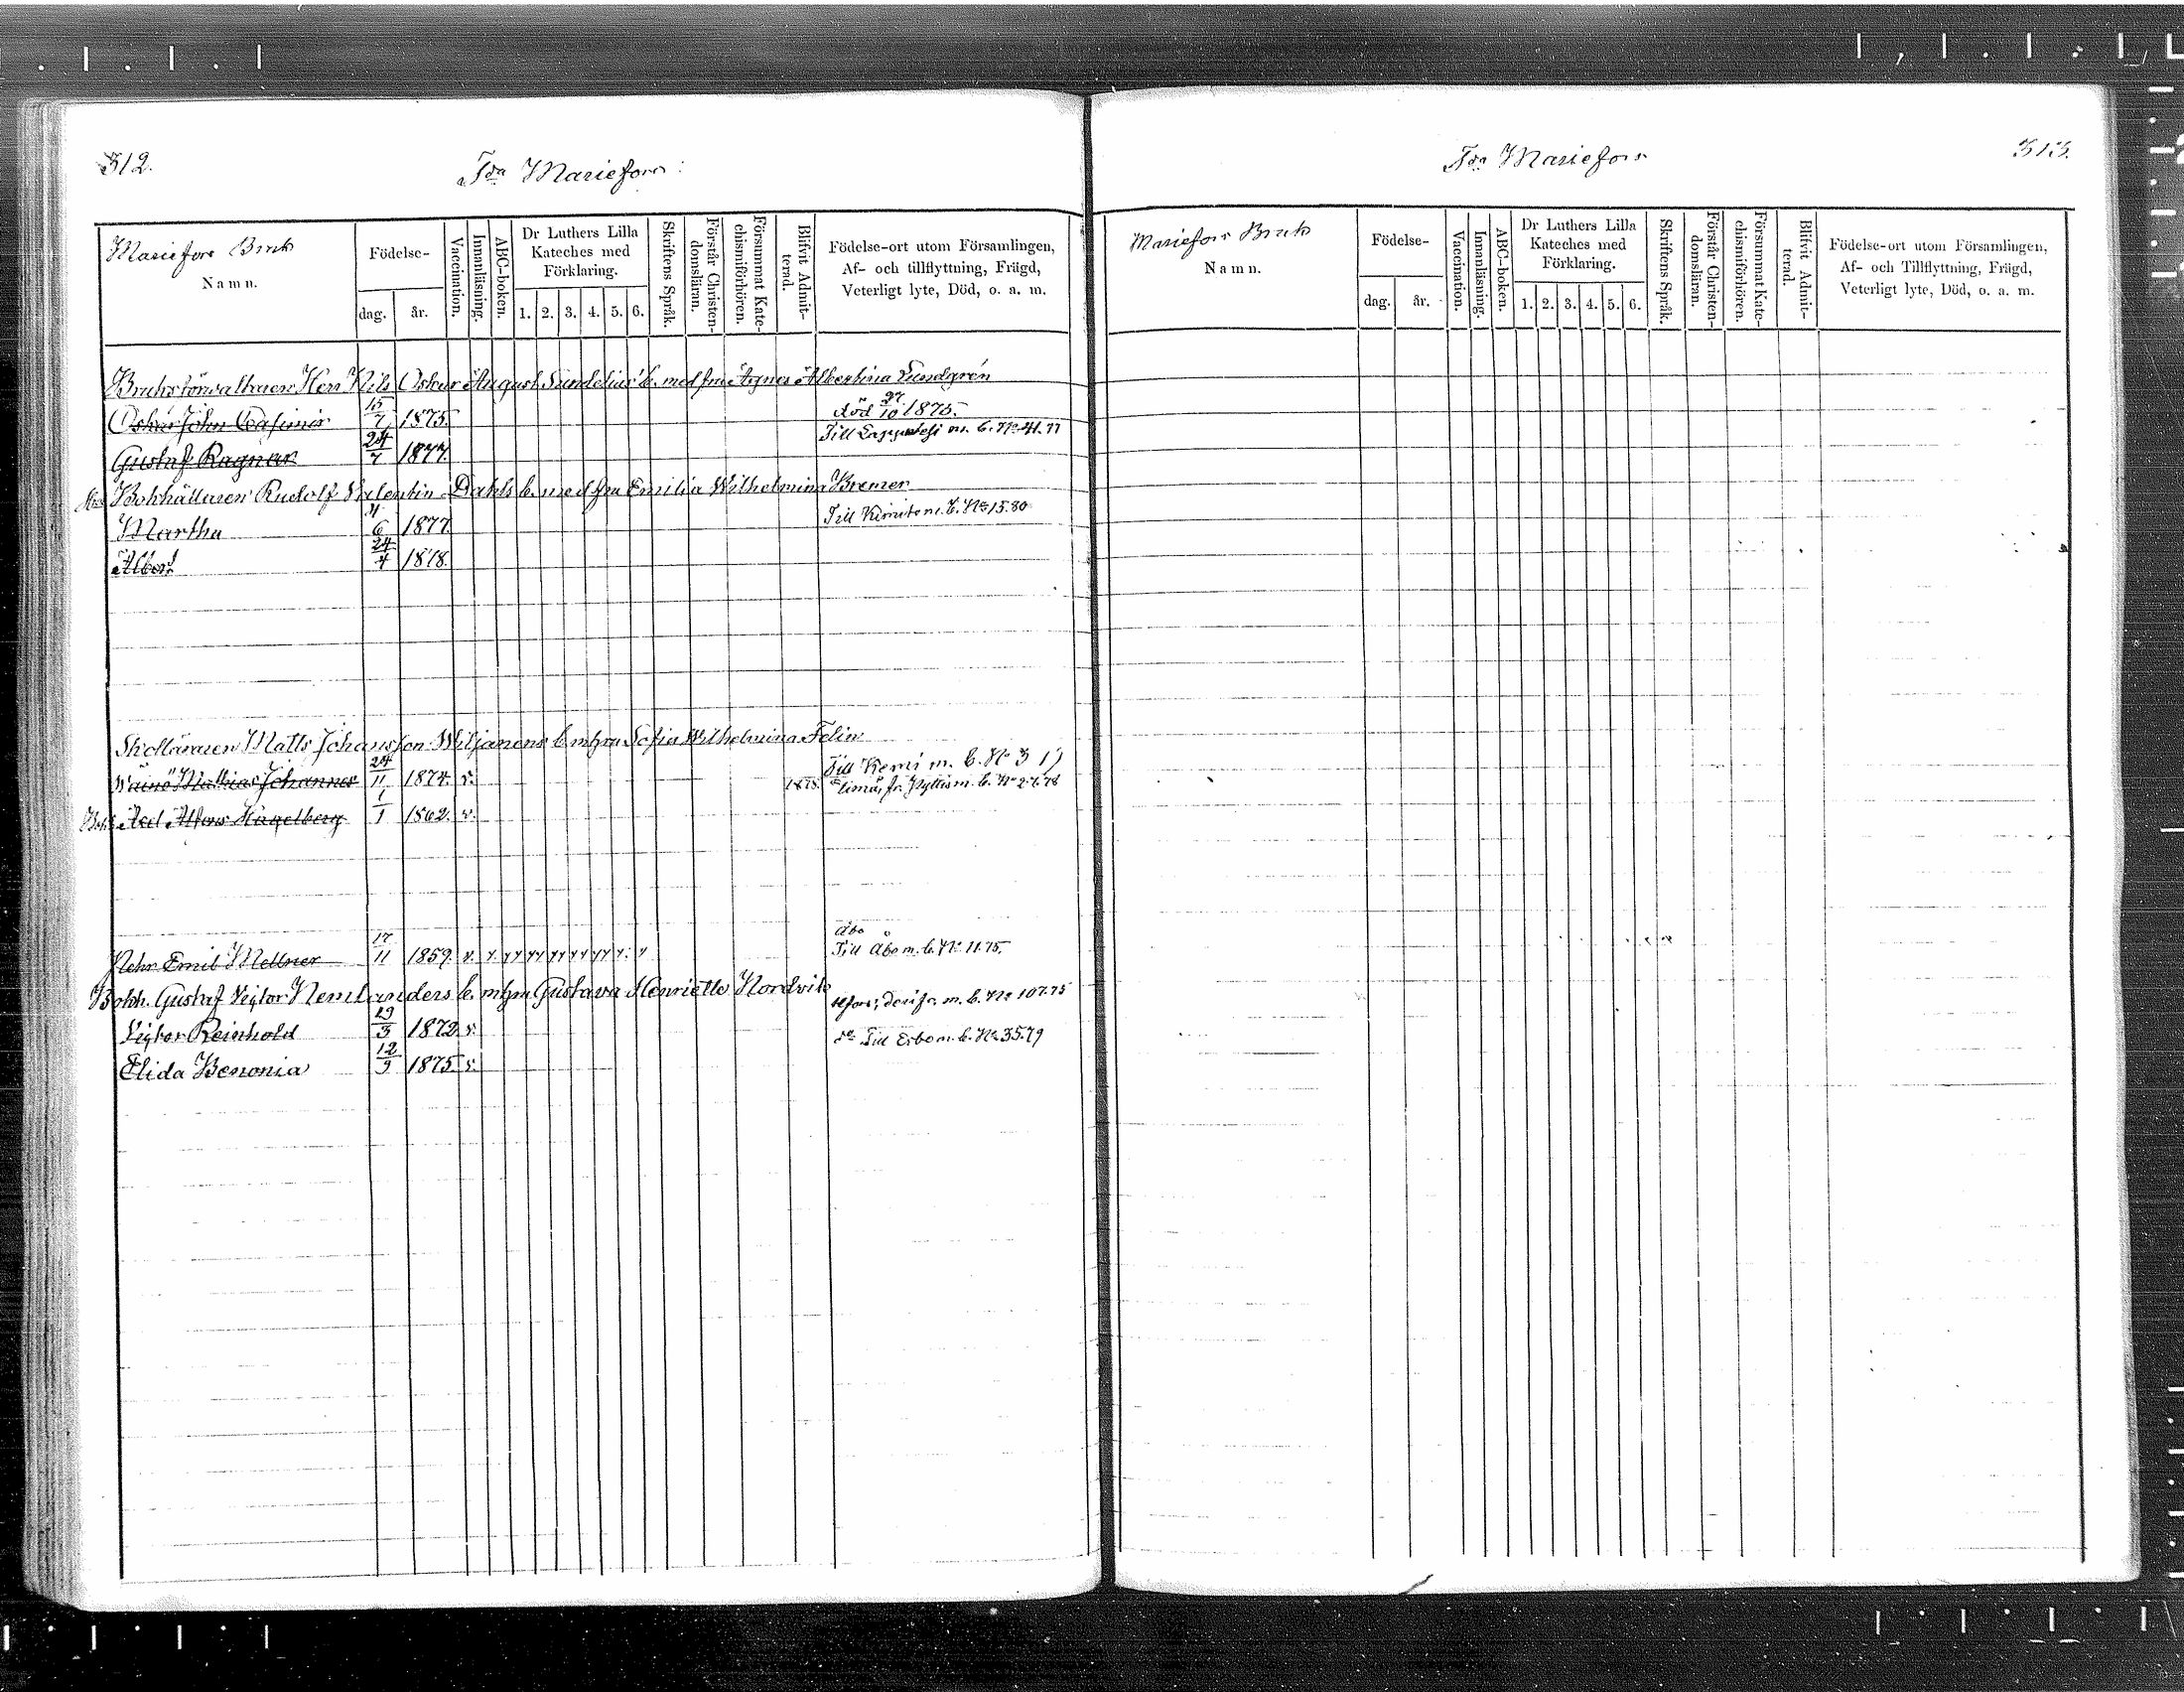 312.
Mariefors
Mariefors Bruk
Namn.
Födelse-
dag.
år.
Vaccination.
Innanläsning.
ABC-boken.
Dr Luthers Lilla Kateches med Förklaring.
1. 2. 3. 4. 5. 6.
Skriftens Språk.
Förstår Christen-domsläran.
Försummat Kate-chismiförhören.
Blifvit Admit-terad.
Födelse-ort utom Församlingen,
Af- och tillflyttning, Frägd,
Veterligt lyte, Död, o. a. m.
Bruksförvaltaren Herr Nils Oskar August Sundelius' b. med fru Agnes Albertina Lundgrén
Oskar John Casimir 15/7 1875. död 27/10 1875.
Gustaf Ragnar 24/7 1877. Till m. b. No 41. 77
Bokhållaren Rudolf Valentin Dahls b. med fru Emilia Wilhelmina Bremer
Martha 4/6 1877. Till Kimito m. b. No 15. 80
Albert 24/4 1878.
Skolläraren Matts Johansson Wiljanens b. m hru Sofia Wilhelmina Felin
Wäinö Mathias Johannes 24/11 1874. v. Till Kemi m. b. No 3
Axel Alfons Hagelberg 1/1 1862. v. 1878. fr. Pyttis m. b. No 27. 78
Åbo
Emil Mellner 17/11 1859. v. Till Åbo m. b. No 11. 75.
Bokh. Gustaf Victor Nemlanders b. m hru Gustava Henriette Nordvik
Victor Reinhold 29/3 1872. v. m. b. No 107. 75
Elida Benonia 12/3 1875. v. Till Esbo m. b. No 35. 79
313.
Mariefors
Mariefors Bruk
Namn.
Födelse-
dag.
år.
Vaccination.
Innanläsning.
ABC-boken.
Dr Luthers Lilla Kateches med Förklaring.
1. 2. 3. 4. 5. 6.
Skriftens Språk.
Förstår Christen-domsläran.
Försummat Kate-chismiförhören.
Blifvit Admit-terad.
Födelse-ort utom Församlingen,
Af- och Tillflyttning, Frägd,
Veterligt lyte, Död, o. a. m.